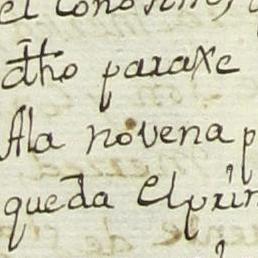 el conosim
dho paraxe
Ala novena p
queda El prin